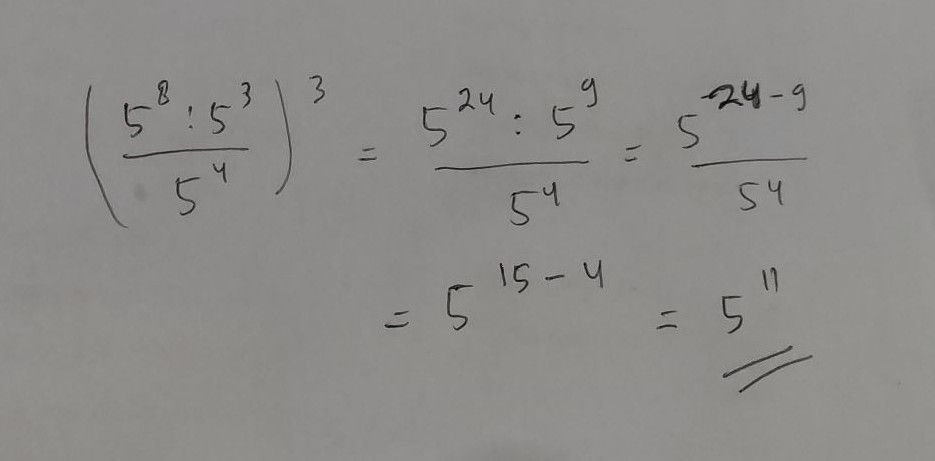 (5^8 : 5^3 / 5^4)^3 = 5^24 : 5^9 / 5^4 = 5^24-9 / 5^4
= 5^15-4 = 5^11